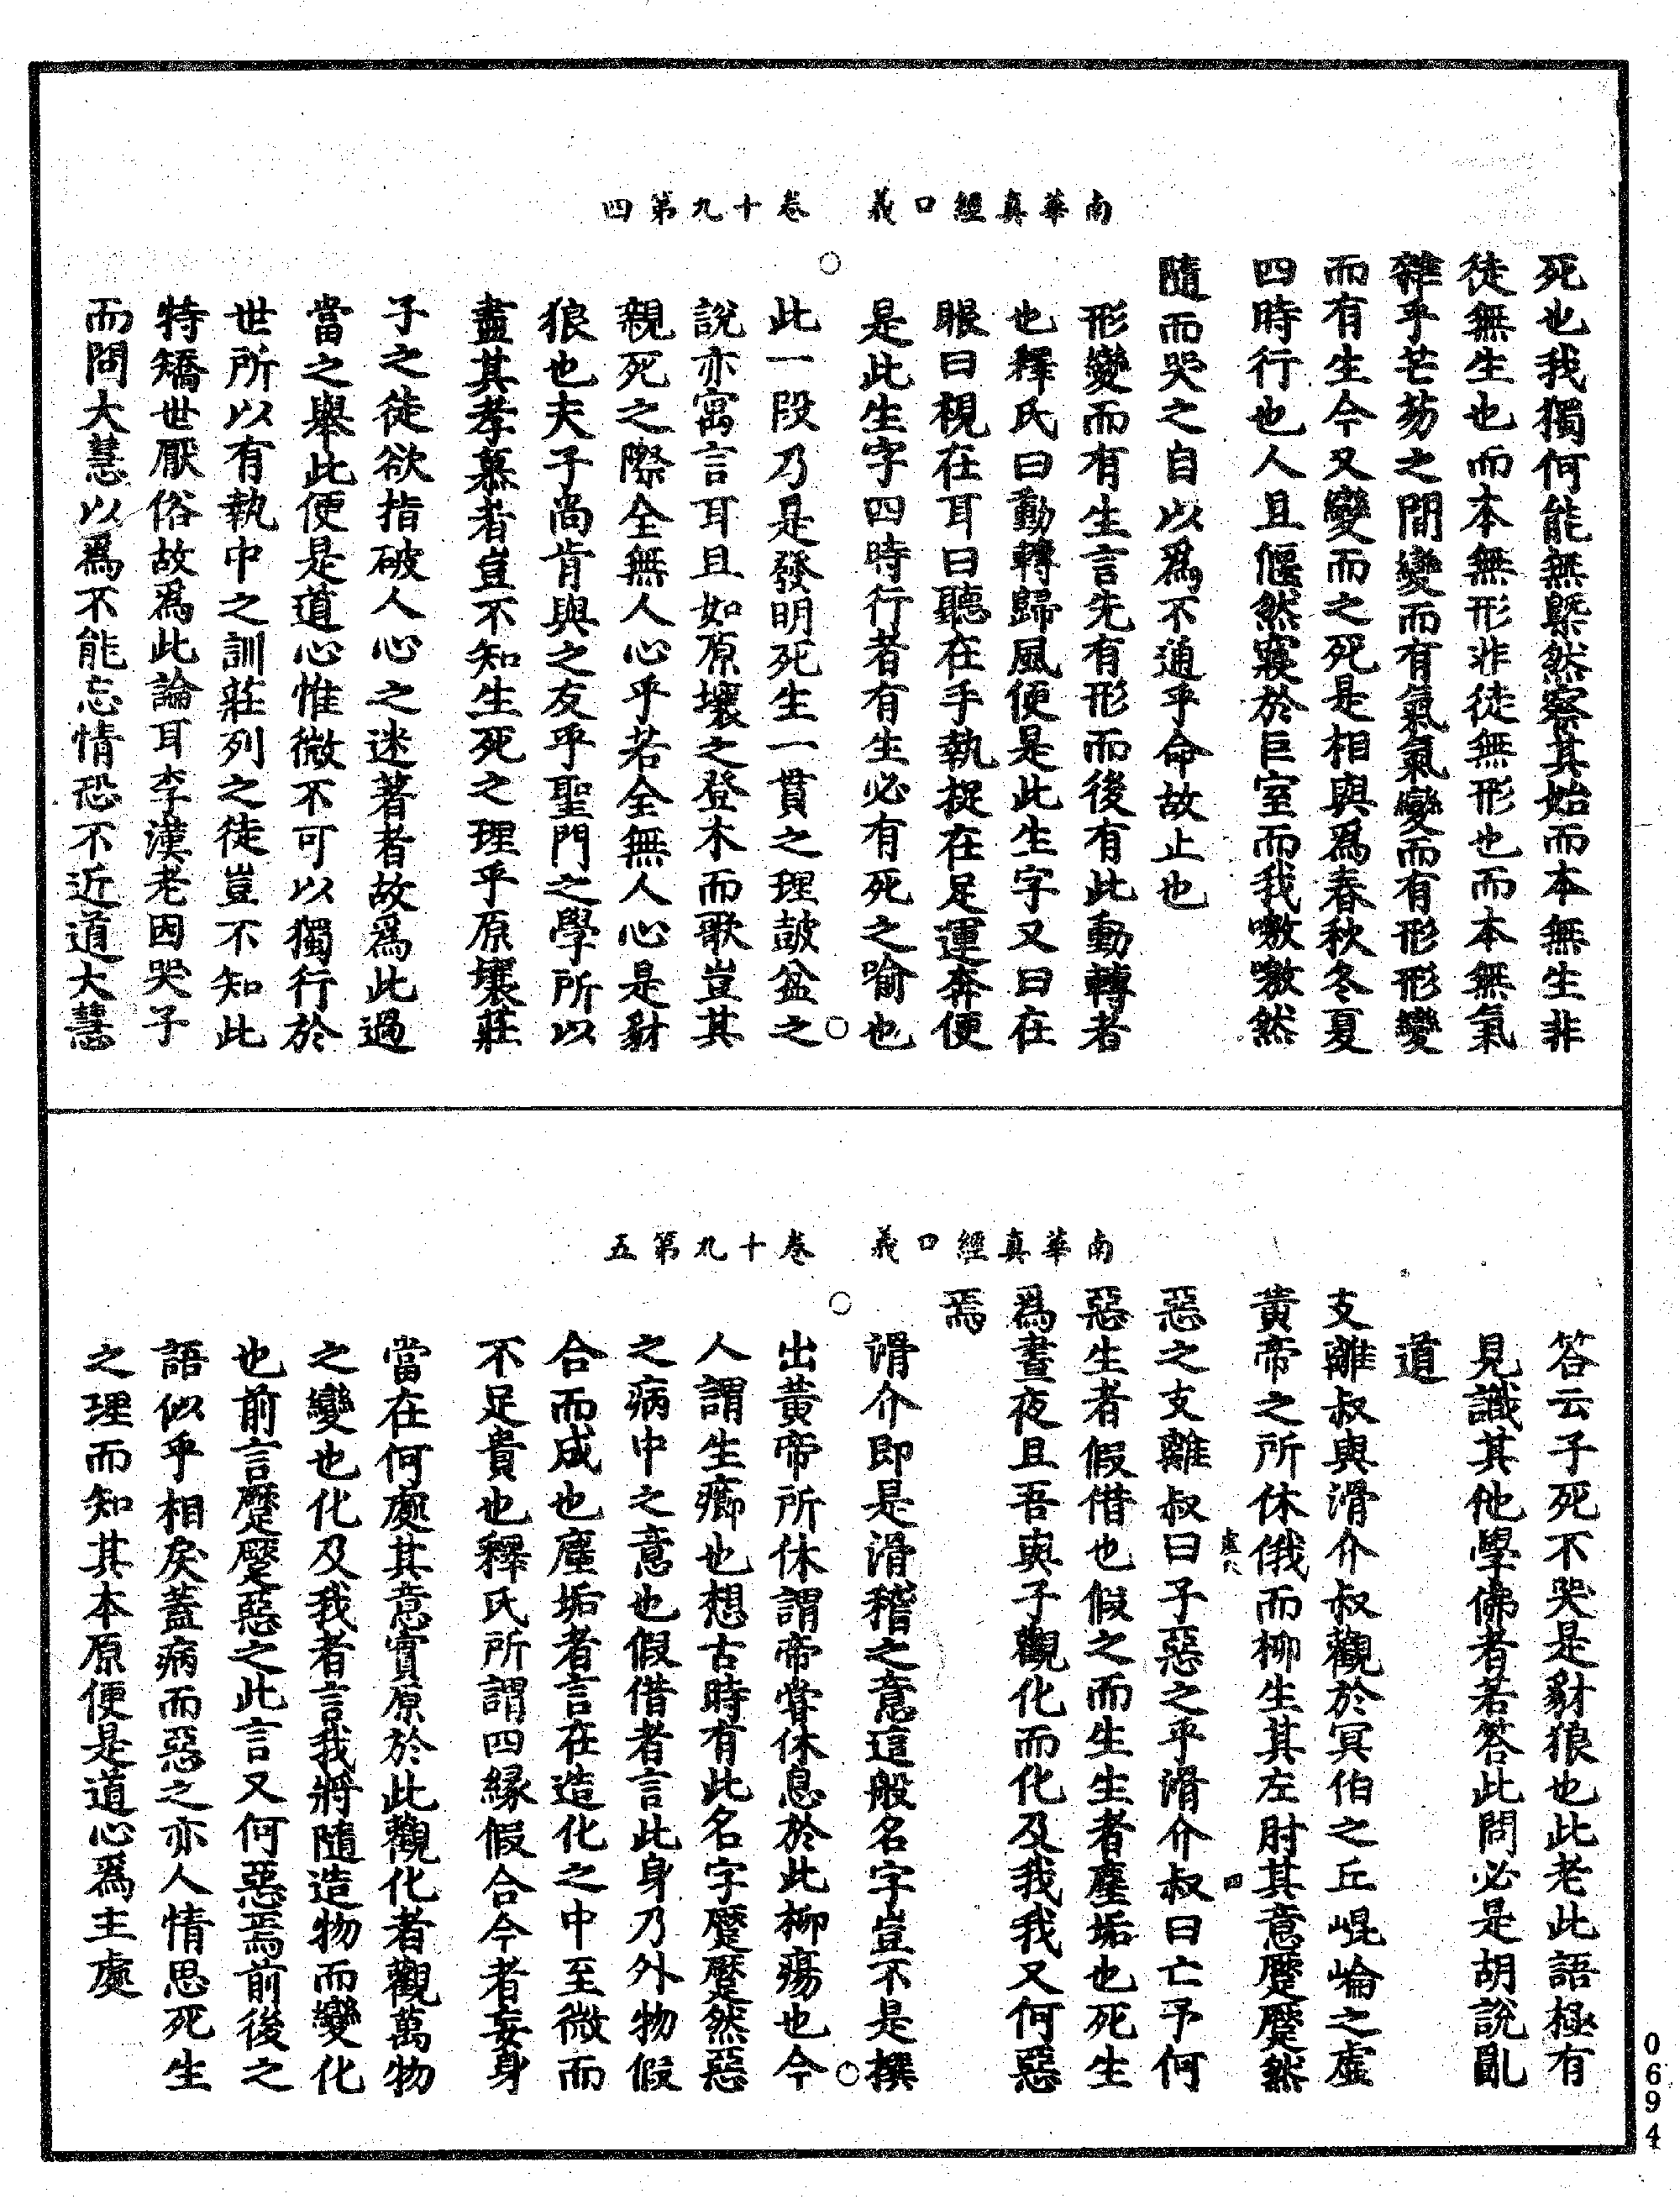 南華真經口義　卷十九第四
死也我獨何能無槩然察其始而本無生非
徒無生也而本無形非徒無形也而本無氣
雜乎芒芴之間變而有氣氣變而有形形變
而有生今又變而之死是相與爲春秋冬夏
四時行也人且偃然寢於巨室而我噭噭然
隨而哭之自以爲不通乎命故止也
形變而有生言先有形而後有此動轉者
也釋氏曰動轉歸風便是此生字又曰在
眼曰視在耳曰聽在手執捉在足運奔便
是此生字四時行者有生必有死之喻也
○此一段乃是發明死生一貫之理皷盆之○
說亦寓言耳且如原壤之登木而歌豈其
親死之際全無人心乎若全無人心是豺
狼也夫子尚肯與之友乎聖門之學所以
盡其孝慕者豈不知生死之理乎原壤莊
子之徒欲指破人心之迷著者故爲此過
當之舉此便是道心惟微不可以獨行於
世所以有執中之訓莊列之徒豈不知此
特矯世厭俗故爲此論耳李漢老因哭子
而問大慧以爲不能忘情恐不近道大慧
南華真經口義　卷十九第五
答云子死不哭是豺狼也此老此語極有
見識其他學佛者若答此問必是胡說亂
道
支離叔與滑介叔觀於冥伯之丘崐崘之虛
黃帝之所休俄而柳生其左肘其意蹷蹷然
惡之支離叔曰子惡之乎滑介叔曰亡予何
惡生者假借也假之而生生者塵垢也死生
爲晝夜且吾與子觀化而化及我我又何惡
焉
滑介即是滑稽之意這般名字豈不是撰
○出黃帝所休謂帝甞休息於此柳瘍也今○
人謂生癤也想古時有此名字蹷蹷然惡
之病中之意也假借者言此身乃外物假
合而成也塵垢者言在造化之中至微而
不足貴也釋氏所謂四緣假合今者妄身
當在何處其意實原於此觀化者觀萬物
之變也化及我者言我將隨造物而變化
也前言蹷蹷惡之此言又何惡焉前後之
語似乎相戾蓋病而惡之亦人情思死生
之理而知其本原便是道心爲主處
0694